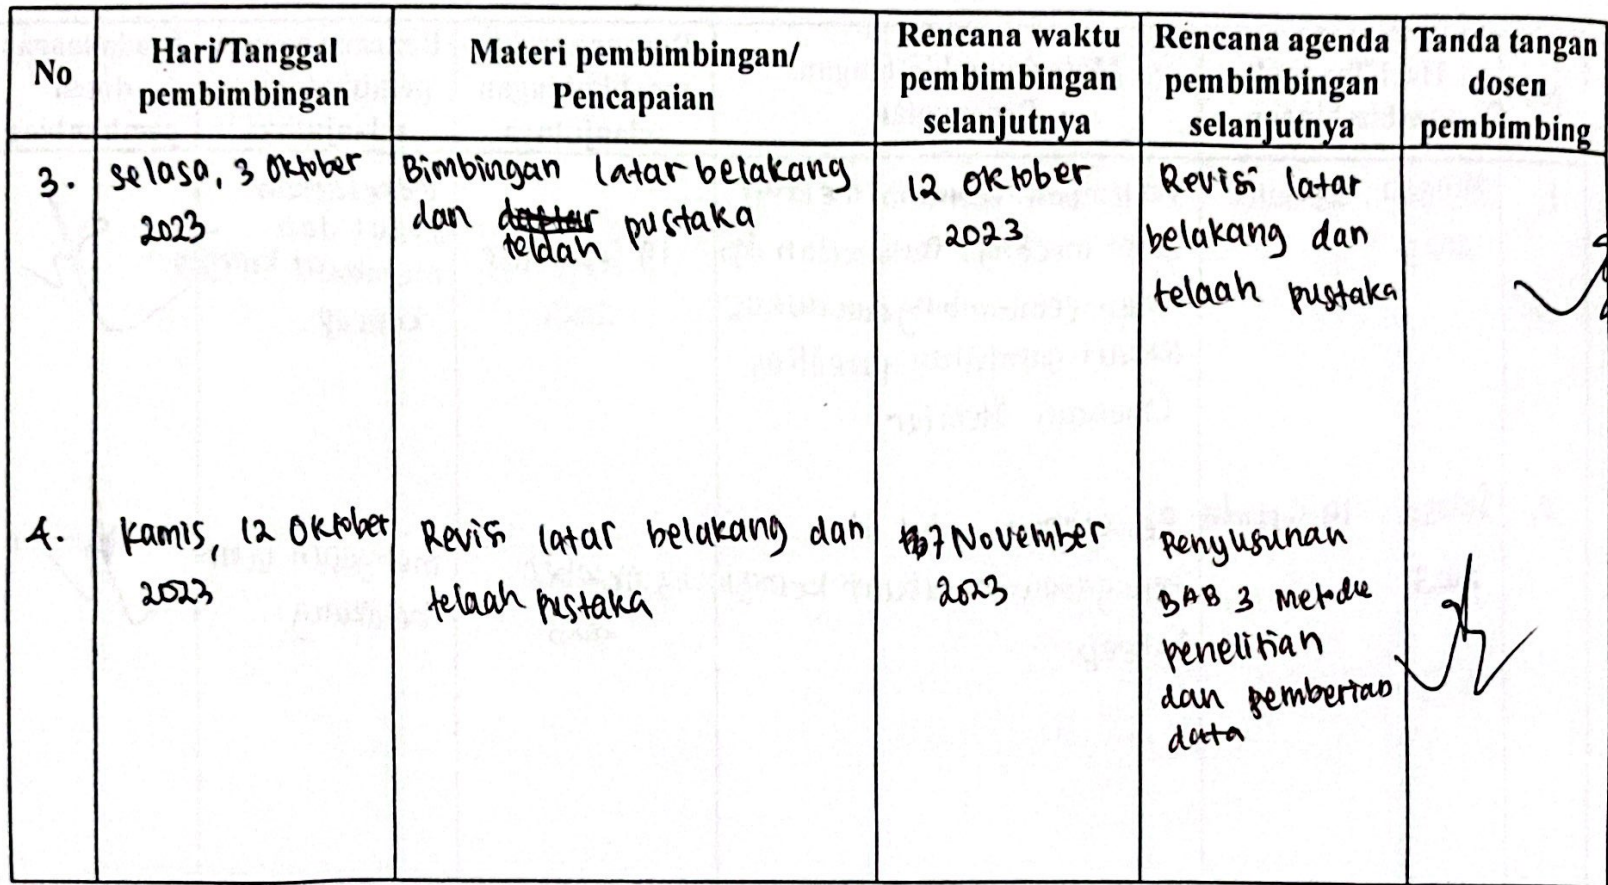 No
Hari/Tanggal
pembimbingan
Materi pembimbingan/
Pencapaian
Rencana waktu
pembimbingan
selanjutnya
Rencana agenda
pembimbingan
selanjutnya
Tanda tangan
dosen
pembimbing
3.
selasa, 3 Oktober
2023
Bimbingan latar belakang
dan daftar pustaka
telaah
12 Oktober
2023
Revisi latar
belakang dan
telaah pustaka
4.
Kamis, 12 Oktober
2023
Revisi latar belakang dan
telaah pustaka
7 November
2023
Penyusunan
BAB 3 Metode
penelitian
dan
data